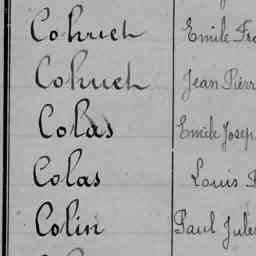 Cohuet Emile
Cohuet Jean Pierr
Colas Emile Josep
Colas Louis
Colin Paul Jules